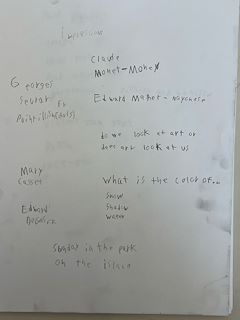 Impression
Claude
Monet-Money
Georges
Seurat
Fr
Pointillism(dots)
Edward Manet-
do we look at art or
does art look at us
Mary
Casset
What is the color of...
Snow
Shadow
water
Edward
Sunday in the park
on the island